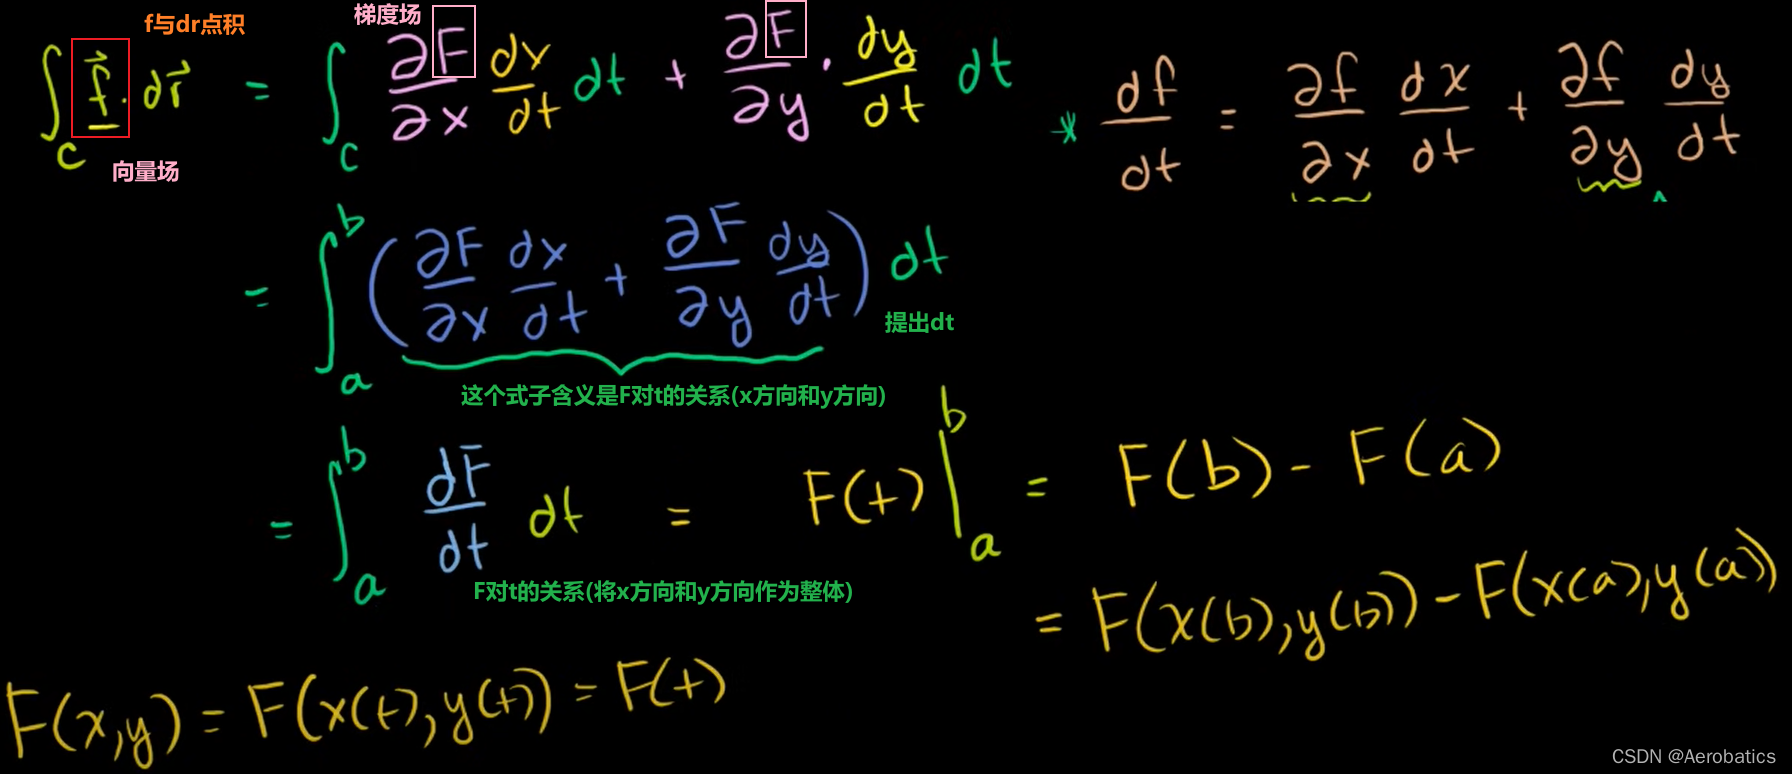 f与dr点积
梯度场
∫_C f⃗ · dr⃗ = ∫_C ∂F/∂x dx/dt dt + ∂F/∂y · dy/dt dt
* df/dt = ∂f/∂x dx/dt + ∂f/∂y dy/dt
向量场
= ∫_a^b (∂F/∂x dx/dt + ∂F/∂y dy/dt) dt
提出dt
这个式子含义是F对t的关系(x方向和y方向)
= ∫_a^b dF/dt dt = F(t) |_a^b = F(b) - F(a)
F对t的关系(将x方向和y方向作为整体)
= F(x(b),y(b)) - F(x(a),y(a))
F(x,y) = F(x(t),y(t)) = F(t)
CSDN @Aerobatics